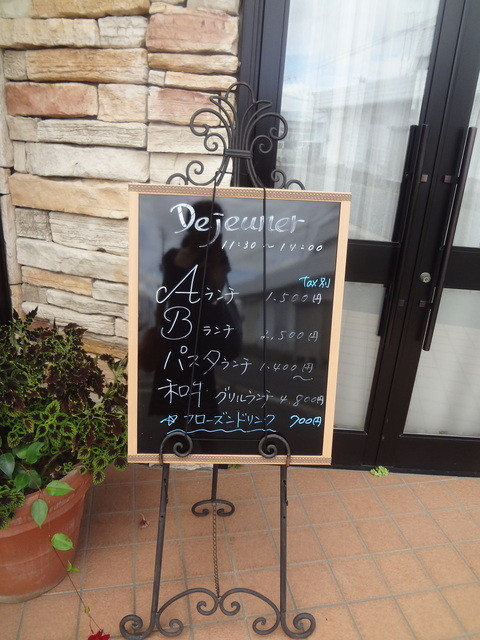 Dejeuner
11:30～14:00
Tax別
Aランチ 1.500円
Bランチ 2,500円
パスタランチ 1.400円～
和牛グリルランチ 4.800円
フローズンドリンク 700円